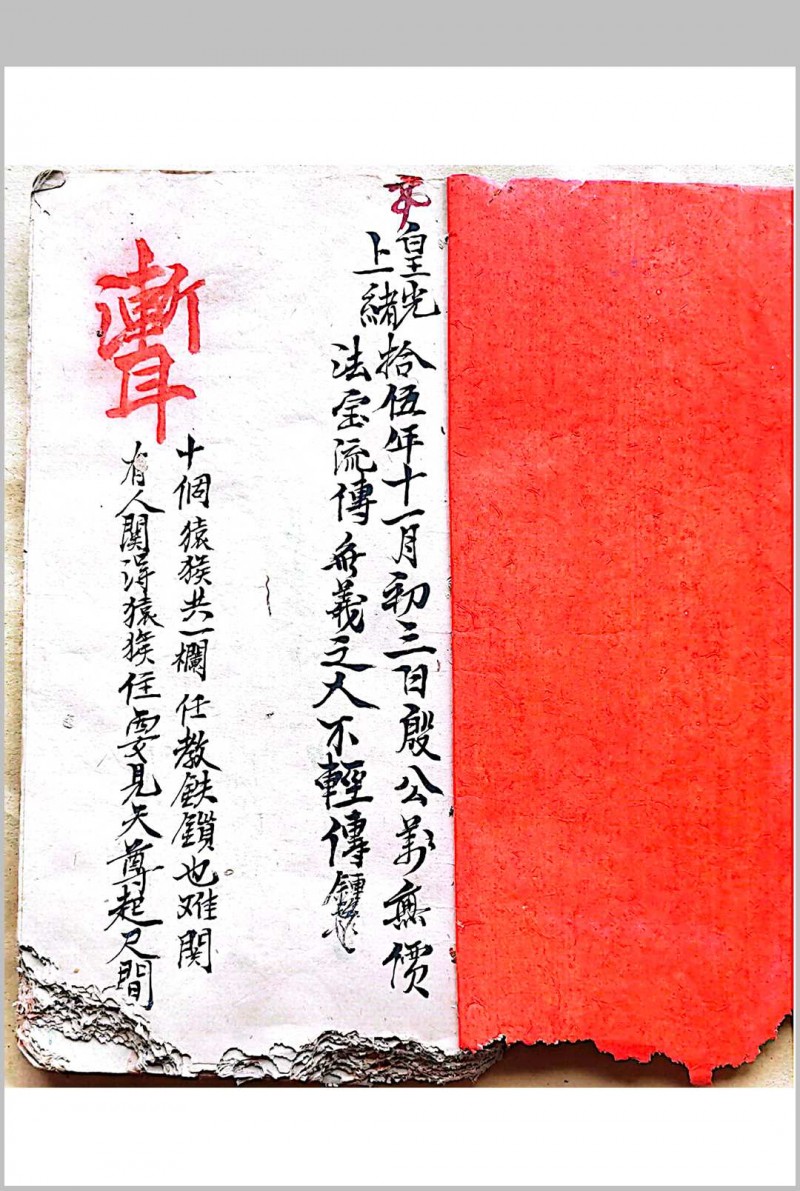 皇上光緒拾伍年十一月初三日殷公義無價
法宝流傳無義之人不輕傳
十個猿猴共一欄任教鉄鎖也难関
有人関得猿猴住要見天尊起尺間
聻